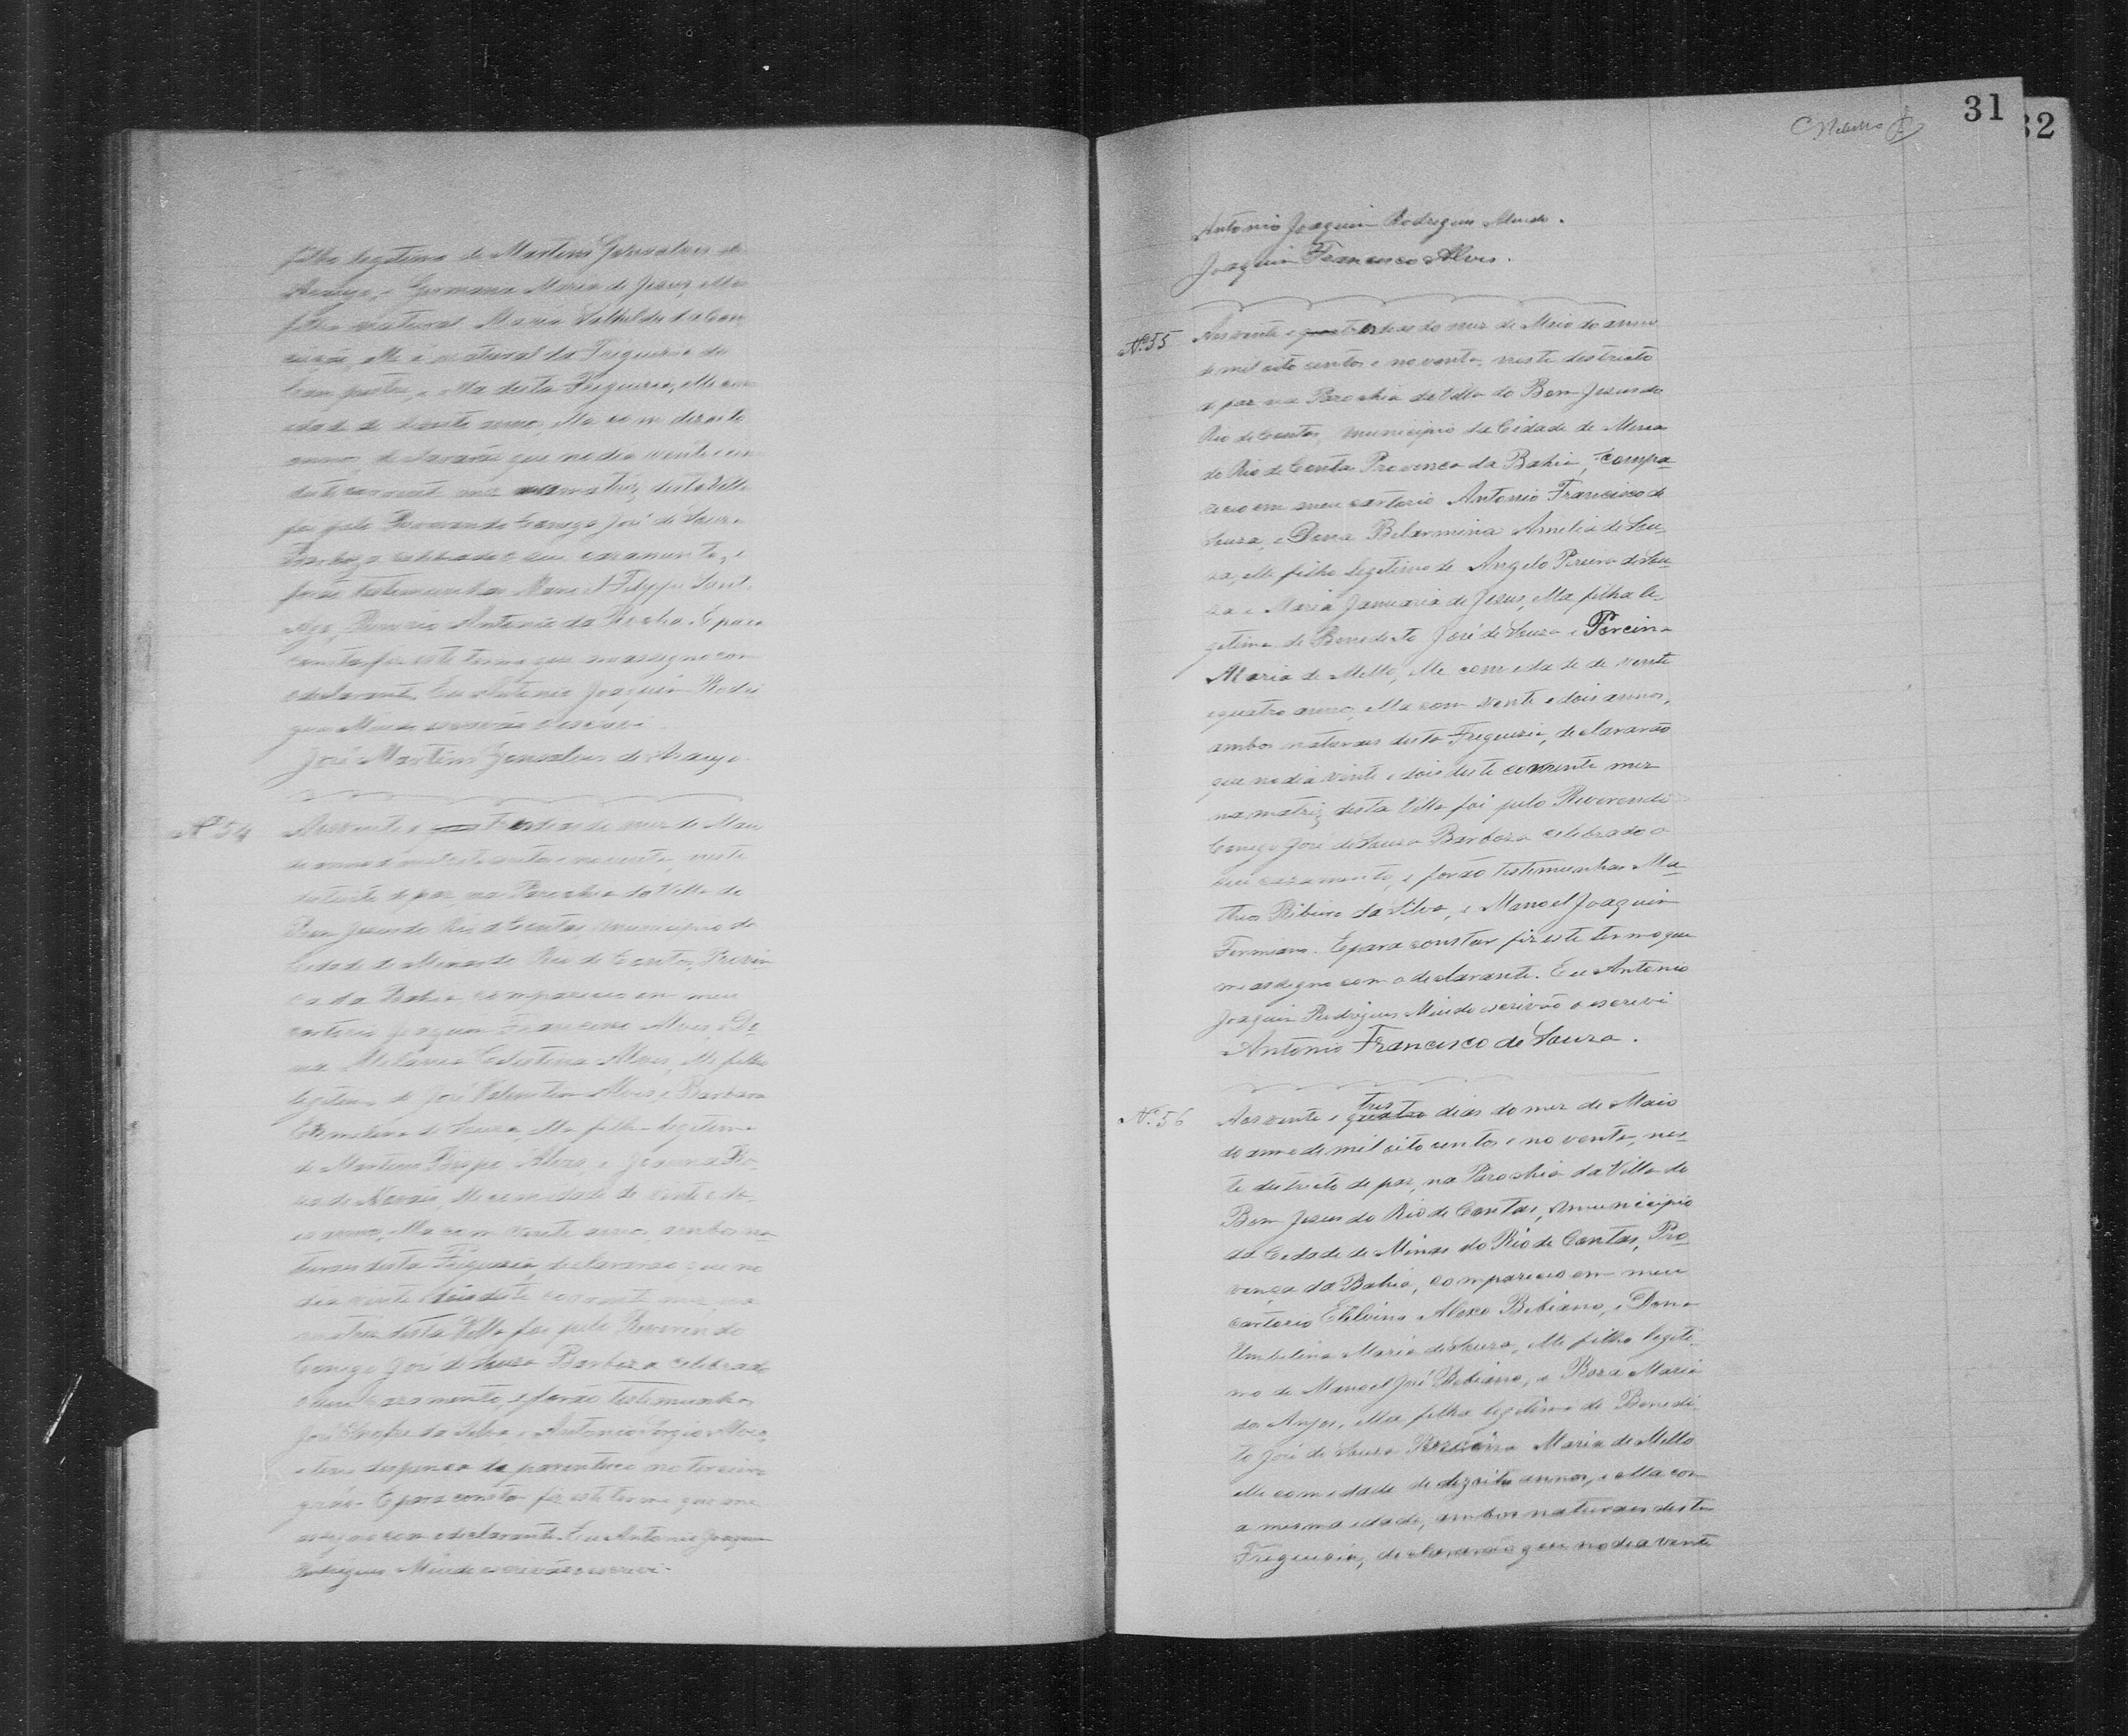 filho legitimo de Martins Gonsalves de
Araujo, e Germana Maria de Jesus, ella
filha natural Maria da Con
ceição, elle e natural da Freguesia de
e ella desta Freguesia, elle com
idade de vinte annos, ella com dezoito
annos, declararão que no dia vinte e um
deste corrente mez na matriz desta Villa
foi pelo Reverendo Conego José de Souza
Barboza celebrado o seu casamento, e
forão testemunhas Manoel Felippe Sant
Antonio da Rocha. E para
constar fiz este termo que me assigno com
o declarante. Eu Antonio Joaquim Rodri
gues Miudo escrivão o escrevi.
José Martins Gonsalves de Araujo.
Nº 54
Aos vinte e tres dias do mez de Maio
do anno de mil oito centos e noventa, neste
destricto de paz, na Parochia da Villa do
Bom Jesus do Rio de Contas, Municipio da
Cidade de Minas do Rio de Contas, Provin
ca da Bahia compareceo em meu
cartorio Joaquim Francisco Alves, e Do
na Melania Celestina Alves, elle filho
legitimo de José Valentim Alves, e Barbara
de Souza, ella filha legitima
de Martins Alves, e Joanna
de Novais, elle com idade de vinte e do
is annos, ella com vinte anno, ambos na
turaes desta Freguesia, declararão que no
dia vinte e dois deste corrente mez, na
matriz desta Villa foi pelo Reverendo
Conego José de Souza Barboza celebrado
o seu casamento, e forão testemunhas
José da Silva, e Antonio Sergio Alves,
e teve dispensa de parentesco no terceiro
gráo. E para constar fiz este termo que me
assigno com o declarante. Eu Antonio Joaquim
Rodrigues Miudo escrivão o escrevi.
31
32
Antonio Joaquim Rodrigues Miudo.
Joaquim Francisco Alves.
Nº 55
Aos vinte e quatro tres dias do mez de Maio do anno
de mil oito centos e noventa, neste destricto
de paz na Parochia da Villa do Bom Jesus do
Rio de Contas, Municipio da Cidade de Minas
do Rio de Contas Provinca da Bahia, Compa-
receo em meu cartorio Antonio Francisco de
Souza, e Dona Belarmina Amelia de Sou-
za, elle filho legitimo de Angelo Pereira de Sou-
za e Maria Januaria de Jesus, ella filha le-
gitima de Benedicto José de Souza e Porcina
Maria de Mello, elle com idade de vinte
e quatro annos, ella com vinte e dois annos,
ambos naturaes desta Freguesia, declararão
que no dia vinte e dois deste corrente mez
na matriz desta Villa foi pelo Reverendo
Conego José de Souza Barboza celebrado o
seu casamento, e forão testemunhas Ma-
theus Ribeiro da Silva, e Manoel Joaquim
Firmiano. E para constar fiz este termo que
me assigno com o declarante. Eu Antonio
Joaquim Rodrigues Miudo escrivão o escrevi
Antonio Francisco de Souza.
Nº 56
Aos vinte e quatro tres dias do mez de Maio
do anno de mil oito centos e noventa, nes-
te destricto de paz, na Parochia da Villa do
Bom Jesus do Rio de Contas, Municipio
da Cidade de Minas do Rio de Contas, Pro-
vinca da Bahia, compareceo em meu
cartorio Etelvino Alexo Bibiano, e Dona
Umbelina Maria de Souza, elle filho legiti-
mo de Manoel José Bibiano, e Roza Maria
dos Anjos, ella filha legitima de Benedi-
to José de Souza Maria de Mello
elle com idade de dezoito annos, e ella com
a mesma idade, ambos naturaes desta
Freguesia, declararão que no dia vinte